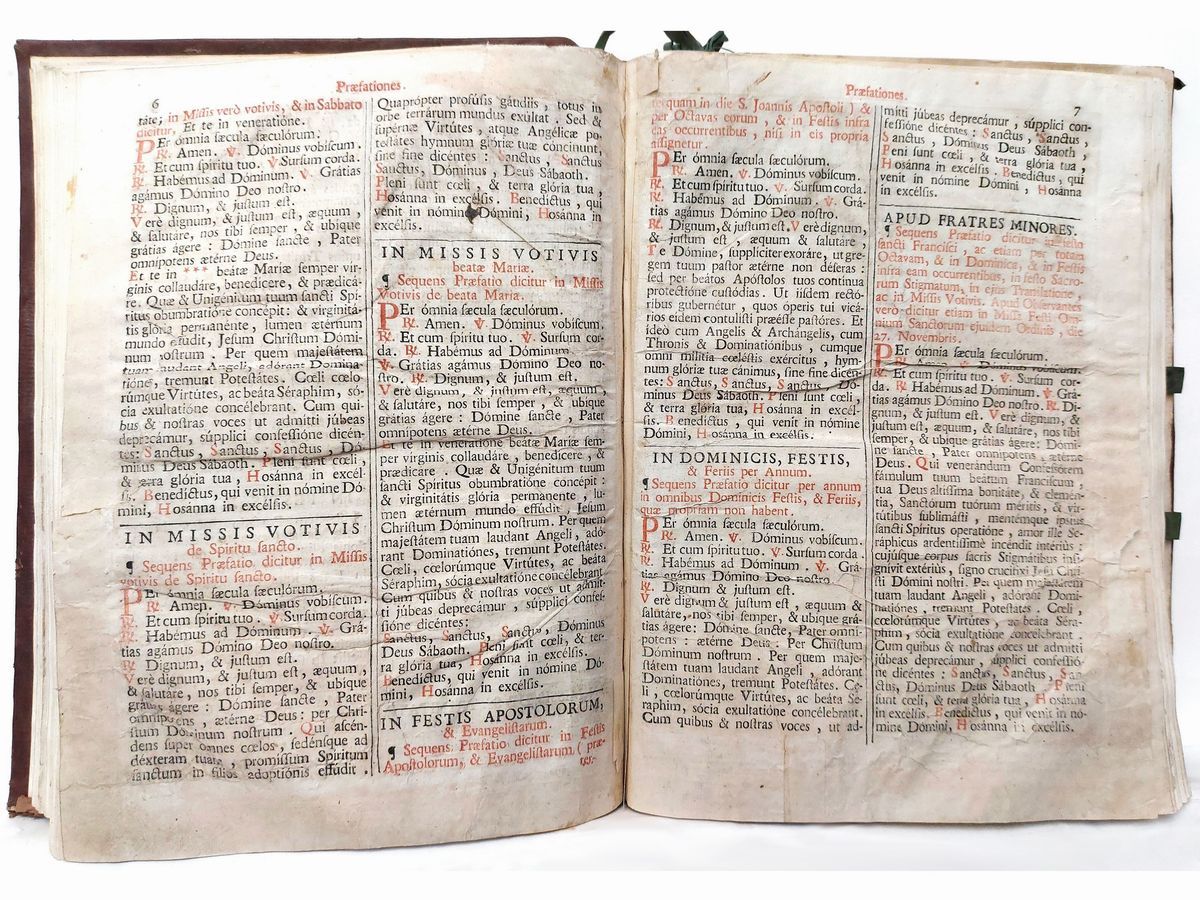 6
Præfationes.
táte; in Missis verò votivis, & in Sabbato
dicitur, Et te in veneratióne.
PEr ómnia sæcula sæculórum.
℟. Amen. ℣. Dóminus vobiscum.
℟. Et cum spiritu tuo. ℣. Sursum corda.
℟. Habémus ad Dóminum. ℣. Grátias
agámus Dómino Deo nostro.
℟. Dignum, & justum est.
Verè dignum, & justum est, æquum,
& salutáre, nos tibi semper, & ubique
grátias ágere: Dómine sancte, Pater
omnipotens ætérne Deus.
Et te in *** beátæ Maríæ semper vir-
ginis collaudáre, benedícere, & prædicá-
re. Quæ & Unigénitum tuum sancti Spí-
ritus obumbratióne concépit: & virginitá-
tis glória permanénte, lumen ætérnum
mundo effúdit, Jesum Christum Dómi-
num nostrum. Per quem majestátem
tuam laudant Angeli, adórant Domina-
tiónes, tremunt Potestátes. Cœli cœlo-
rúmque Virtútes, ac beáta Séraphim, só-
cia exultatióne concélebrant. Cum qui-
bus & nostras voces ut admitti júbeas
deprecámur, súpplici confessióne dicén-
tes: Sanctus, Sanctus, Sanctus, Dó-
minus Deus Sábaoth. Pleni sunt cœli,
& terra glória tua, Hosánna in excél-
sis. Benedictus, qui venit in nómine Dó-
mini, Hosánna in excélsis.
IN MISSIS VOTIVIS
de Spiritu sancto.
¶ Sequens Præfatio dicitur in Missis
votivis de Spiritu sancto.
PEr ómnia sæcula sæculórum.
℟. Amen. ℣. Dóminus vobiscum.
℟. Et cum spiritu tuo. ℣. Sursum corda.
℟. Habémus ad Dóminum. ℣. Grá-
tias agámus Dómino Deo nostro.
℟. Dignum, & justum est.
Verè dignum, & justum est, æquum,
& salutáre, nos tibi semper, & ubique
gratias ágere: Dómine sancte, Pater
omnípotens, ætérne Deus: per Chri-
stum Dóminum nostrum. Qui ascén-
dens super omnes cœlos, sedénsque ad
déxteram tuam, promissum Spíritum
sanctum in fílios adoptiónis effúdit.
Quaprópter profúsis gáudiis, totus in
orbe terrárum mundus exúltat. Sed &
supérnæ Virtútes, atque Angélicæ po-
testátes hymnum glóriæ tuæ cóncinunt,
sine fine dicéntes: Sanctus, Sanctus
Sanctus, Dóminus, Deus Sábaoth.
Pleni sunt cœli, & terra glória tua,
Hosánna in excélsis. Benedictus, qui
venit in nómine Dómini, Hosánna in
excélsis.
IN MISSIS VOTIVIS
beatæ Mariæ.
¶ Sequens Præfatio dicitur in Missis
Votivis de beata Maria.
PEr ómnia sæcula sæculórum.
℟. Amen. ℣. Dóminus vobiscum.
℟. Et cum spíritu tuo. ℣. Sursum cor-
da. ℟. Habémus ad Dóminum.
℣. Grátias agámus Dómino Deo no-
stro. ℟. Dignum, & justum est.
Verè dignum, & justum est, æquum,
& salutáre, nos tibi semper, & ubique
grátias ágere: Dómine sancte, Pater
omnípotens ætérne Deus.
Et te in veneratióne beátæ Maríæ sem-
per vírginis collaudáre, benedícere, &
prædicáre. Quæ & Unigénitum tuum
sancti Spíritus obumbratióne concépit:
& virginitátis glória permanénte, lu-
men ætérnum mundo effúdit, Jesum
Christum Dóminum nostrum. Per quem
majestátem tuam laudant Angeli, adó-
rant Dominatiónes, tremunt Potestátes.
Cœli, cœlorúmque Virtútes, ac beáta
Séraphim, sócia exultatióne concélebrant
Cum quibus & nostras voces ut admít-
ti júbeas deprecámur, súpplici confes-
sióne dicéntes:
Sanctus, Sanctus, Sanctus, Dóminus
Deus Sábaoth. Pleni sunt cœli, & ter-
ra glória tua, Hosánna in excélsis.
Benedictus, qui venit in nómine Dó-
mini, Hosánna in excélsis.
IN FESTIS APOSTOLORUM,
& Evangelistarum.
¶ Sequens Præfatio dicitur in Festis
Apostolorum, & Evangelistarum ( præ-
Præfationes.
7
terquam in die S. Joannis Apostoli ) &
per Octavas eorum, & in Festis infra
eas occurrentibus, nisi in eis propria
assignetur.
PEr ómnia sæcula sæculórum.
℟. Amen. ℣. Dóminus vobiscum.
℟. Et cum spíritu tuo. ℣. Sursum corda.
℟. Habémus ad Dóminum. ℣. Grá-
tias agámus Dómino Deo nostro.
℟. Dignum, & justum est. Verè dignum,
& justum est, æquum & salutáre,
Te Dómine, supplíciter exoráre, ut gre-
gem tuum pastor ætérne non déseras:
sed per beátos Apóstolos tuos contínua
protectióne custódias. Ut iísdem rectó-
ribus gubernétur, quos óperis tui vicá-
rios eídem contulísti præésse pastóres. Et
ídeò cum Angelis & Archángelis, cum
Thronis & Dominatiónibus, cumque
omni milítia cœléstis exércitus, hym-
num glóriæ tuæ cánimus, sine fine dicén-
tes: Sanctus, Sanctus, Sanctus, Dó-
minus Deus Sábaoth. Pleni sunt cœli,
& terra glória tua, Hosánna in excél-
sis. Benedictus, qui venit in nómine
Dómini, Hosánna in excélsis.
IN DOMINICIS, FESTIS,
& Feriis per Annum.
¶ Sequens Præfatio dicitur per annum
in omnibus Dominicis Festis, & Feriis,
quæ propriam non habent.
PEr ómnia sæcula sæculórum.
℟. Amen. ℣. Dóminus vobiscum.
℟. Et cum spíritu tuo. ℣. Sursum corda.
℟. Habémus ad Dóminum. ℣. Grá-
tias agámus Dómino Deo nostro
℟. Dignum, & justum est.
Verè dignum & justum est, æquum &
salutáre, nos tibi semper, & ubique grá-
tias ágere: Dómine sancte, Pater omní-
potens: ætérne Deus: Per Christum
Dóminum nostrum. Per quem maje-
státem tuam laudant Angeli, adórant
Dominatiónes, tremunt Potestátes. Cœ-
li, cœlorúmque Virtútes, ac beáta Sé-
raphim, sócia exultatióne concélebrant.
Cum quibus & nostras voces, ut ad-
mítti júbeas deprecámur, súpplici con-
fessióne dicéntes: Sanctus, Sanctus,
Sanctus, Dóminus Deus Sábaoth,
Pleni sunt cœli, & terra glória tua,
Hosánna in excélsis. Benedictus, qui
venit in nómine Dómini, Hosánna
in excélsis.
APUD FRATRES MINORES.
¶ Sequens Præfatio dicitur in festo
sancti Francisci, ac etiam per totam
Octavam, & in Dominica, & in Festis
infra eam occurrentibus, in festo Sacro-
rum Stigmatum, in ejus Translatione,
ac in Missis Votivis. Apud Observantes
verò dicitur etiam in Missa Festi Om-
nium Sanctorum ejusdem Ordinis, die
27. Novembris.
PEr ómnia sæcula sæculórum.
℟. Amen. ℣. Dóminus vobiscum.
℟. Et cum spíritu tuo. ℣. Sursum cor-
da. ℟. Habémus ad Dóminum. ℣. Grá-
tias agámus Dómino Deo nostro. ℟. Di-
gnum, & justum est. Verè dignum, &
justum est, æquum, & salutáre, nos tibi
semper, & ubique grátias ágere: Dómi-
ne sancte, Pater omnípotens, ætérne
Deus. Qui venerándum Confessórem
fámulum tuum beátum Francíscum,
tua Deus altíssima bonitáte, & clemén-
tia, Sanctórum tuórum méritis, & vir-
tútibus sublimásti, mentémque ipsíus
sancti Spíritus operatióne, amor ille Se-
ráphicus ardentíssimè incéndit intériùs:
cujúsque corpus sacris Stigmátibus insi-
gnívit extériùs, signo crucifíxi Jesu Chri-
sti Dómini nostri. Per quem majestátem
tuam laudant Angeli, adórant Domi-
natiónes, tremunt Potestátes. Cœli,
cœlorúmque Virtútes, ac beáta Séra-
phim, sócia exultatióne concélebrant.
Cum quibus & nostras voces ut admítti
júbeas deprecámur, súpplici confessió-
ne dicéntes: Sanctus, Sanctus, San-
ctus, Dóminus Deus Sábaoth. Pleni
sunt cœli, & terra glória tua, Hosánna
in excélsis. Benedictus, qui venit in nó-
mine Dómini, Hosánna in excélsis.